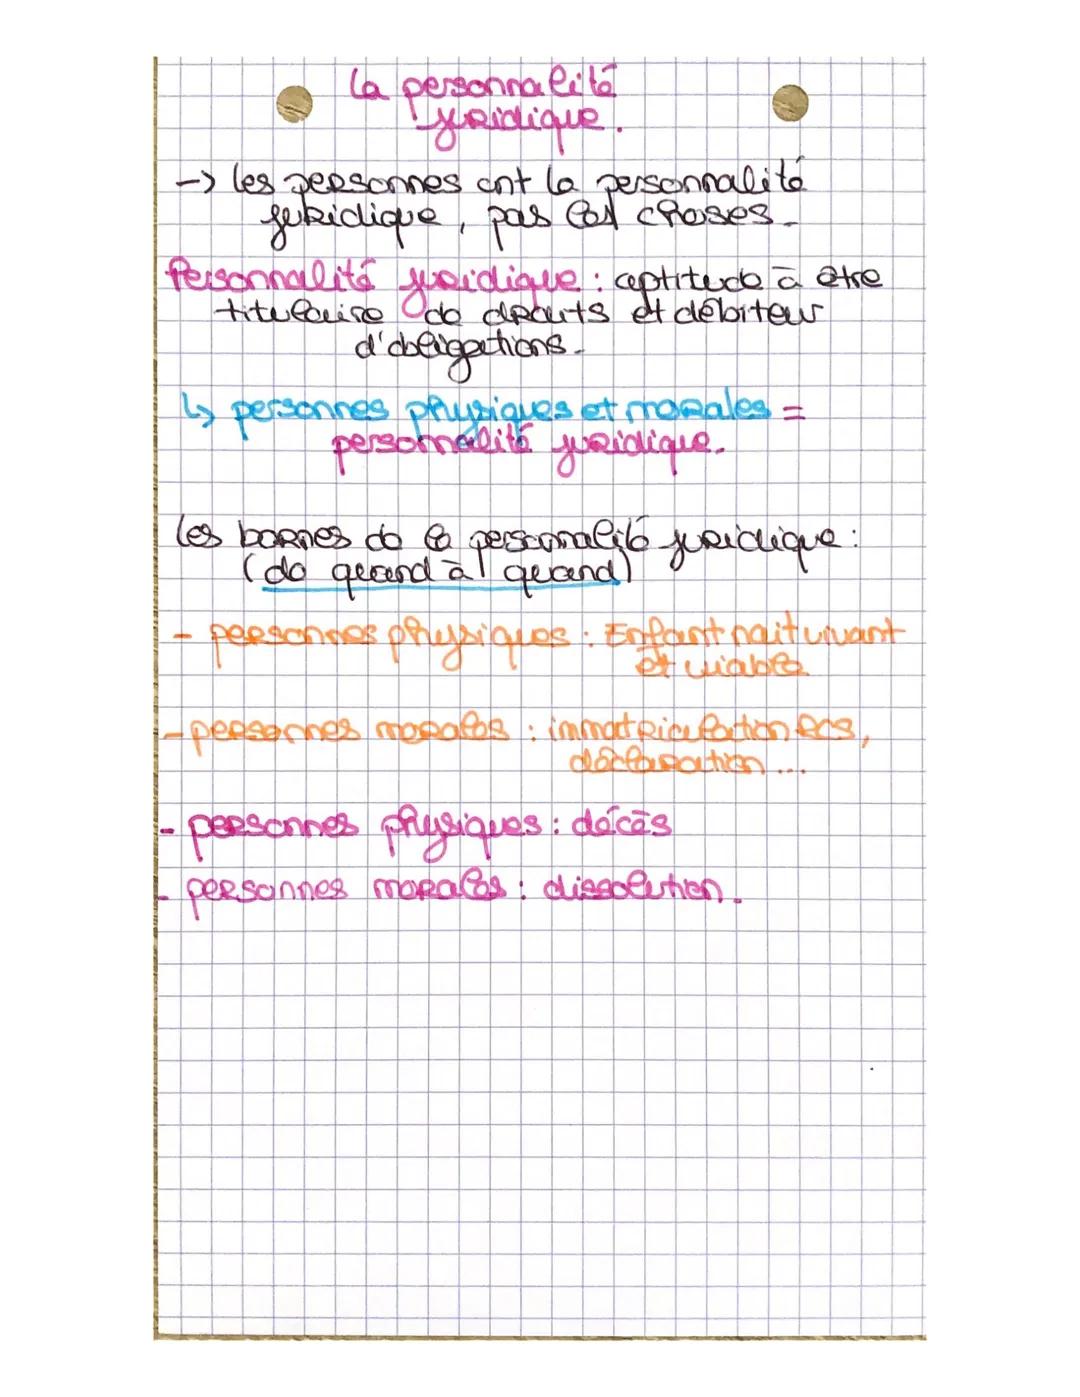 La personnalité
juridique.
-> les personnes ont la personnalité
juridique, pas les choses.
Personnalité juridique : aptitude à être
titulaire de droits et débiteur
d'obligations.
↳ personnes physiques et morales =
personnalité juridique.
Les bornes de la personnalité juridique :
(de quand à quand)
- personnes physiques : Enfant nait vivant
et viable
- personnes morales : immatriculation RCS,
déclaration ...
- personnes physiques : décès
- personnes morales : dissolution.